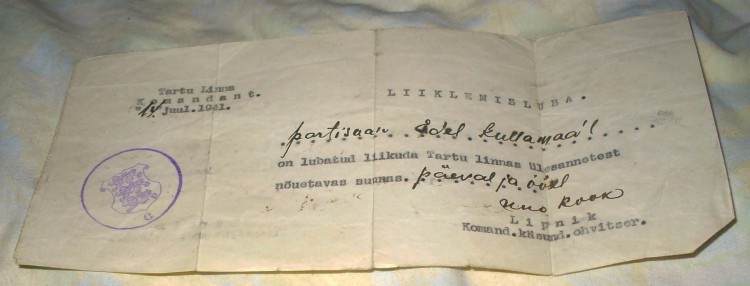 Tartu Linna
Komandant.
"14" juul.1941.
LIIKLEMISLUBA.
partisaan Edel Kullamaa'l
on lubatud liikuda Tartu linnas ülesannetest
nõuetavas suunas. päeval ja ööl
Uno Kook
Lipnik
Komand.käsund.ohvitser.